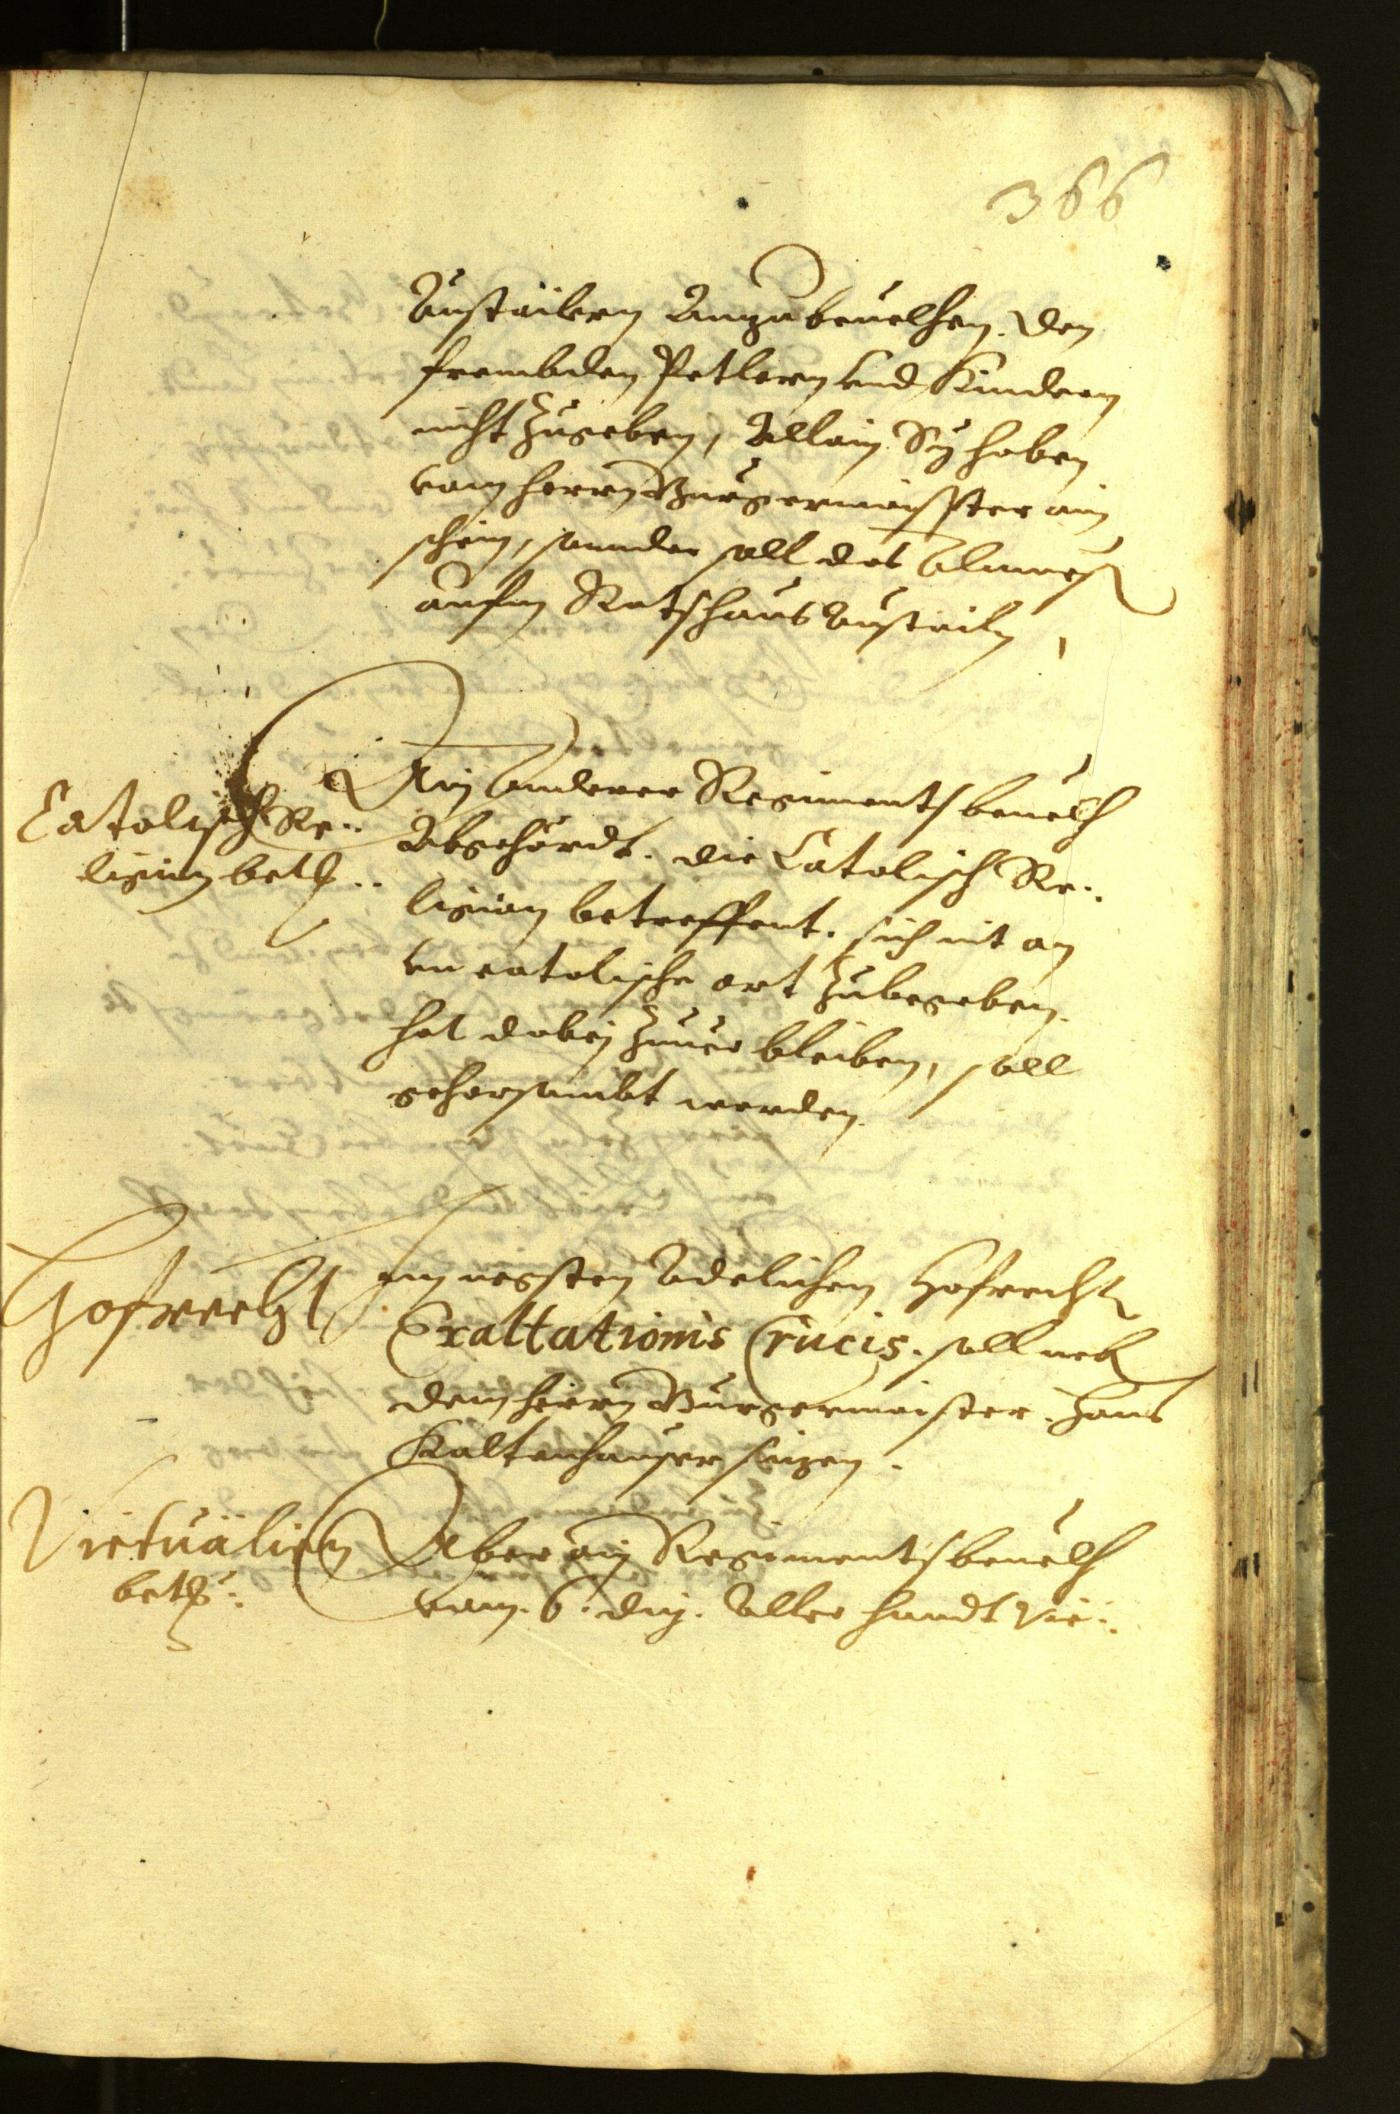 366
Austailern Anzubeuelhen. den
frembden Petlern vnd Kindern
nicht Zugeben, Allain Sy haben
vom herrn Burgermaisster ain
schein, sonnder soll das Almuesen
aufm Rathshaus Austailn
Catolisch Re:
ligion betr:
Ain anderer Regiments beuelch
Abgehördt. die Catolisch Re:
ligion betreffent. sich nit an
vn catolische ort Zubegeben.
hat dabey Zuuer bleiben, soll
gehorsambt werden.
Hofrecht
Im negsten Adelichen Hofrecht
Exaltationis Crucis. soll neb
dem herrn Burgermaister. Hans
Kaltenhauser sizen.
Victualien
betr:
Aber ain Regiments beuelch
vom. 6. diz. Aller handt Vic: